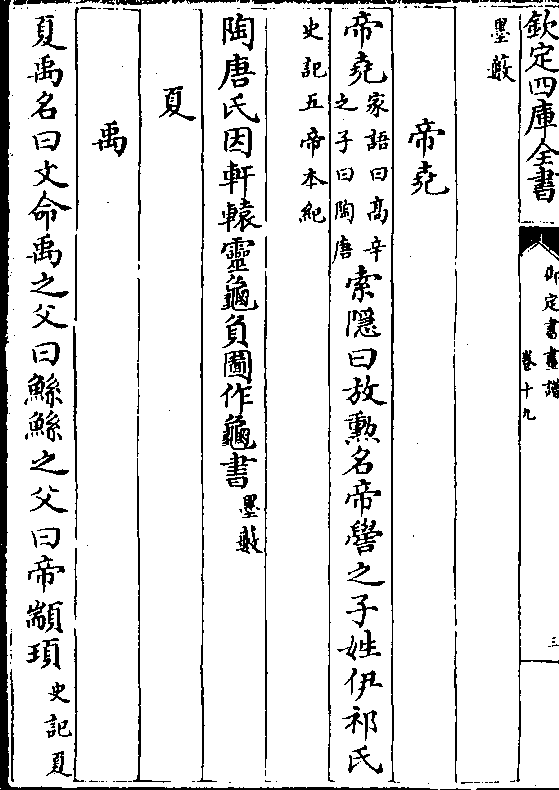 欽定四庫全書
御定書畫譜
卷十九
三
墨藪
帝堯
帝堯家語曰高辛之子曰陶唐索隱曰放勳名帝嚳之子姓伊祁氏
史記五帝本紀
陶唐氏因軒轅靈龜負圖作龜書墨藪
夏
禹
夏禹名曰文命禹之父曰鯀鯀之父曰帝顓頊史記夏